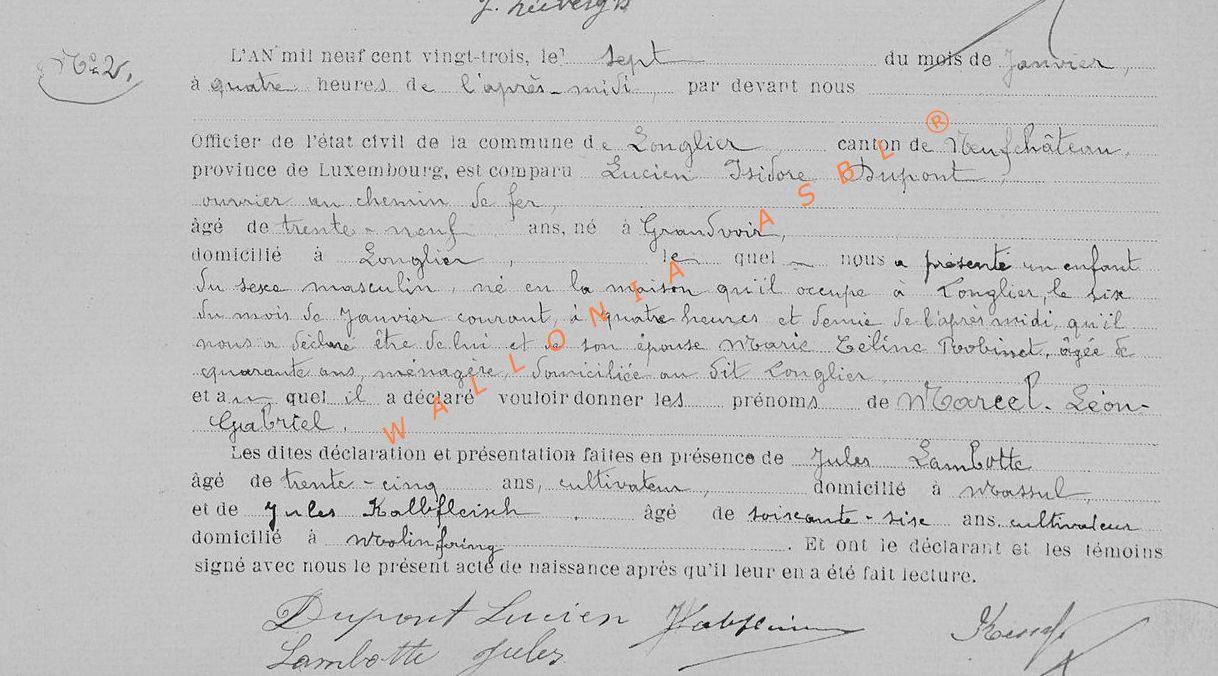 N° 2.
L'AN mil neuf cent vingt-trois, le sept du mois de Janvier,
à quatre heures de l'après-midi, par devant nous
Officier de l'état civil de la commune de Longlier canton de Neufchâteau,
province de Luxembourg, est comparu Lucien Isidore Dupont,
ouvrier au chemin de fer,
âgé de trente-neuf ans, né à Grandvoir,
domicilié à Longlier, le quel nous a présenté un enfant
du sexe masculin, né en la maison qu'il occupe à Longlier, le six
du mois de Janvier courant, à quatre heures et demie de l'après midi, qu'il
nous a déclaré être de lui et de son épouse Marie Céline Robinet, âgée de
quarante ans, ménagère, domiciliée au dit Longlier,
et au quel il a déclaré vouloir donner les prénoms de Marcel-Léon-
Gabriel.
Les dites déclaration et présentation faites en présence de Jules Lambotte
âgé de trente-cinq ans, cultivateur, domicilié à Massul,
et de Jules Kalbfleisch, âgé de soixante-six ans, cultivateur
domicilié à Molinfaing. Et ont le déclarant et les témoins
signé avec nous le présent acte de naissance après qu'il leur en a été fait lecture.
Dupont Lucien
Lambotte Jules
WALLONIA ASBL ®